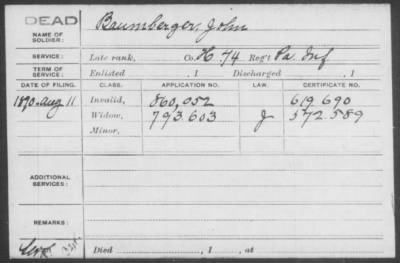 DEAD
NAME OF SOLDIER: Baumberger, John
SERVICE: Late rank, Co. H. 74 Reg't Pa. Inf
TERM OF SERVICE: Enlisted , 1 Discharged , 1
DATE OF FILING. CLASS. APPLICATION NO. LAW. CERTIFICATE NO.
1890-Aug 11 Invalid, 860,052 619 690
Widow, 793 603 J 572 589
Minor,
ADDITIONAL SERVICES:
REMARKS:
Died , 1 , at